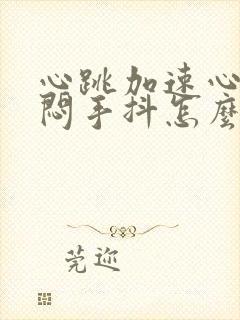 心跳加速心
悶手抖怎麼
莞迩